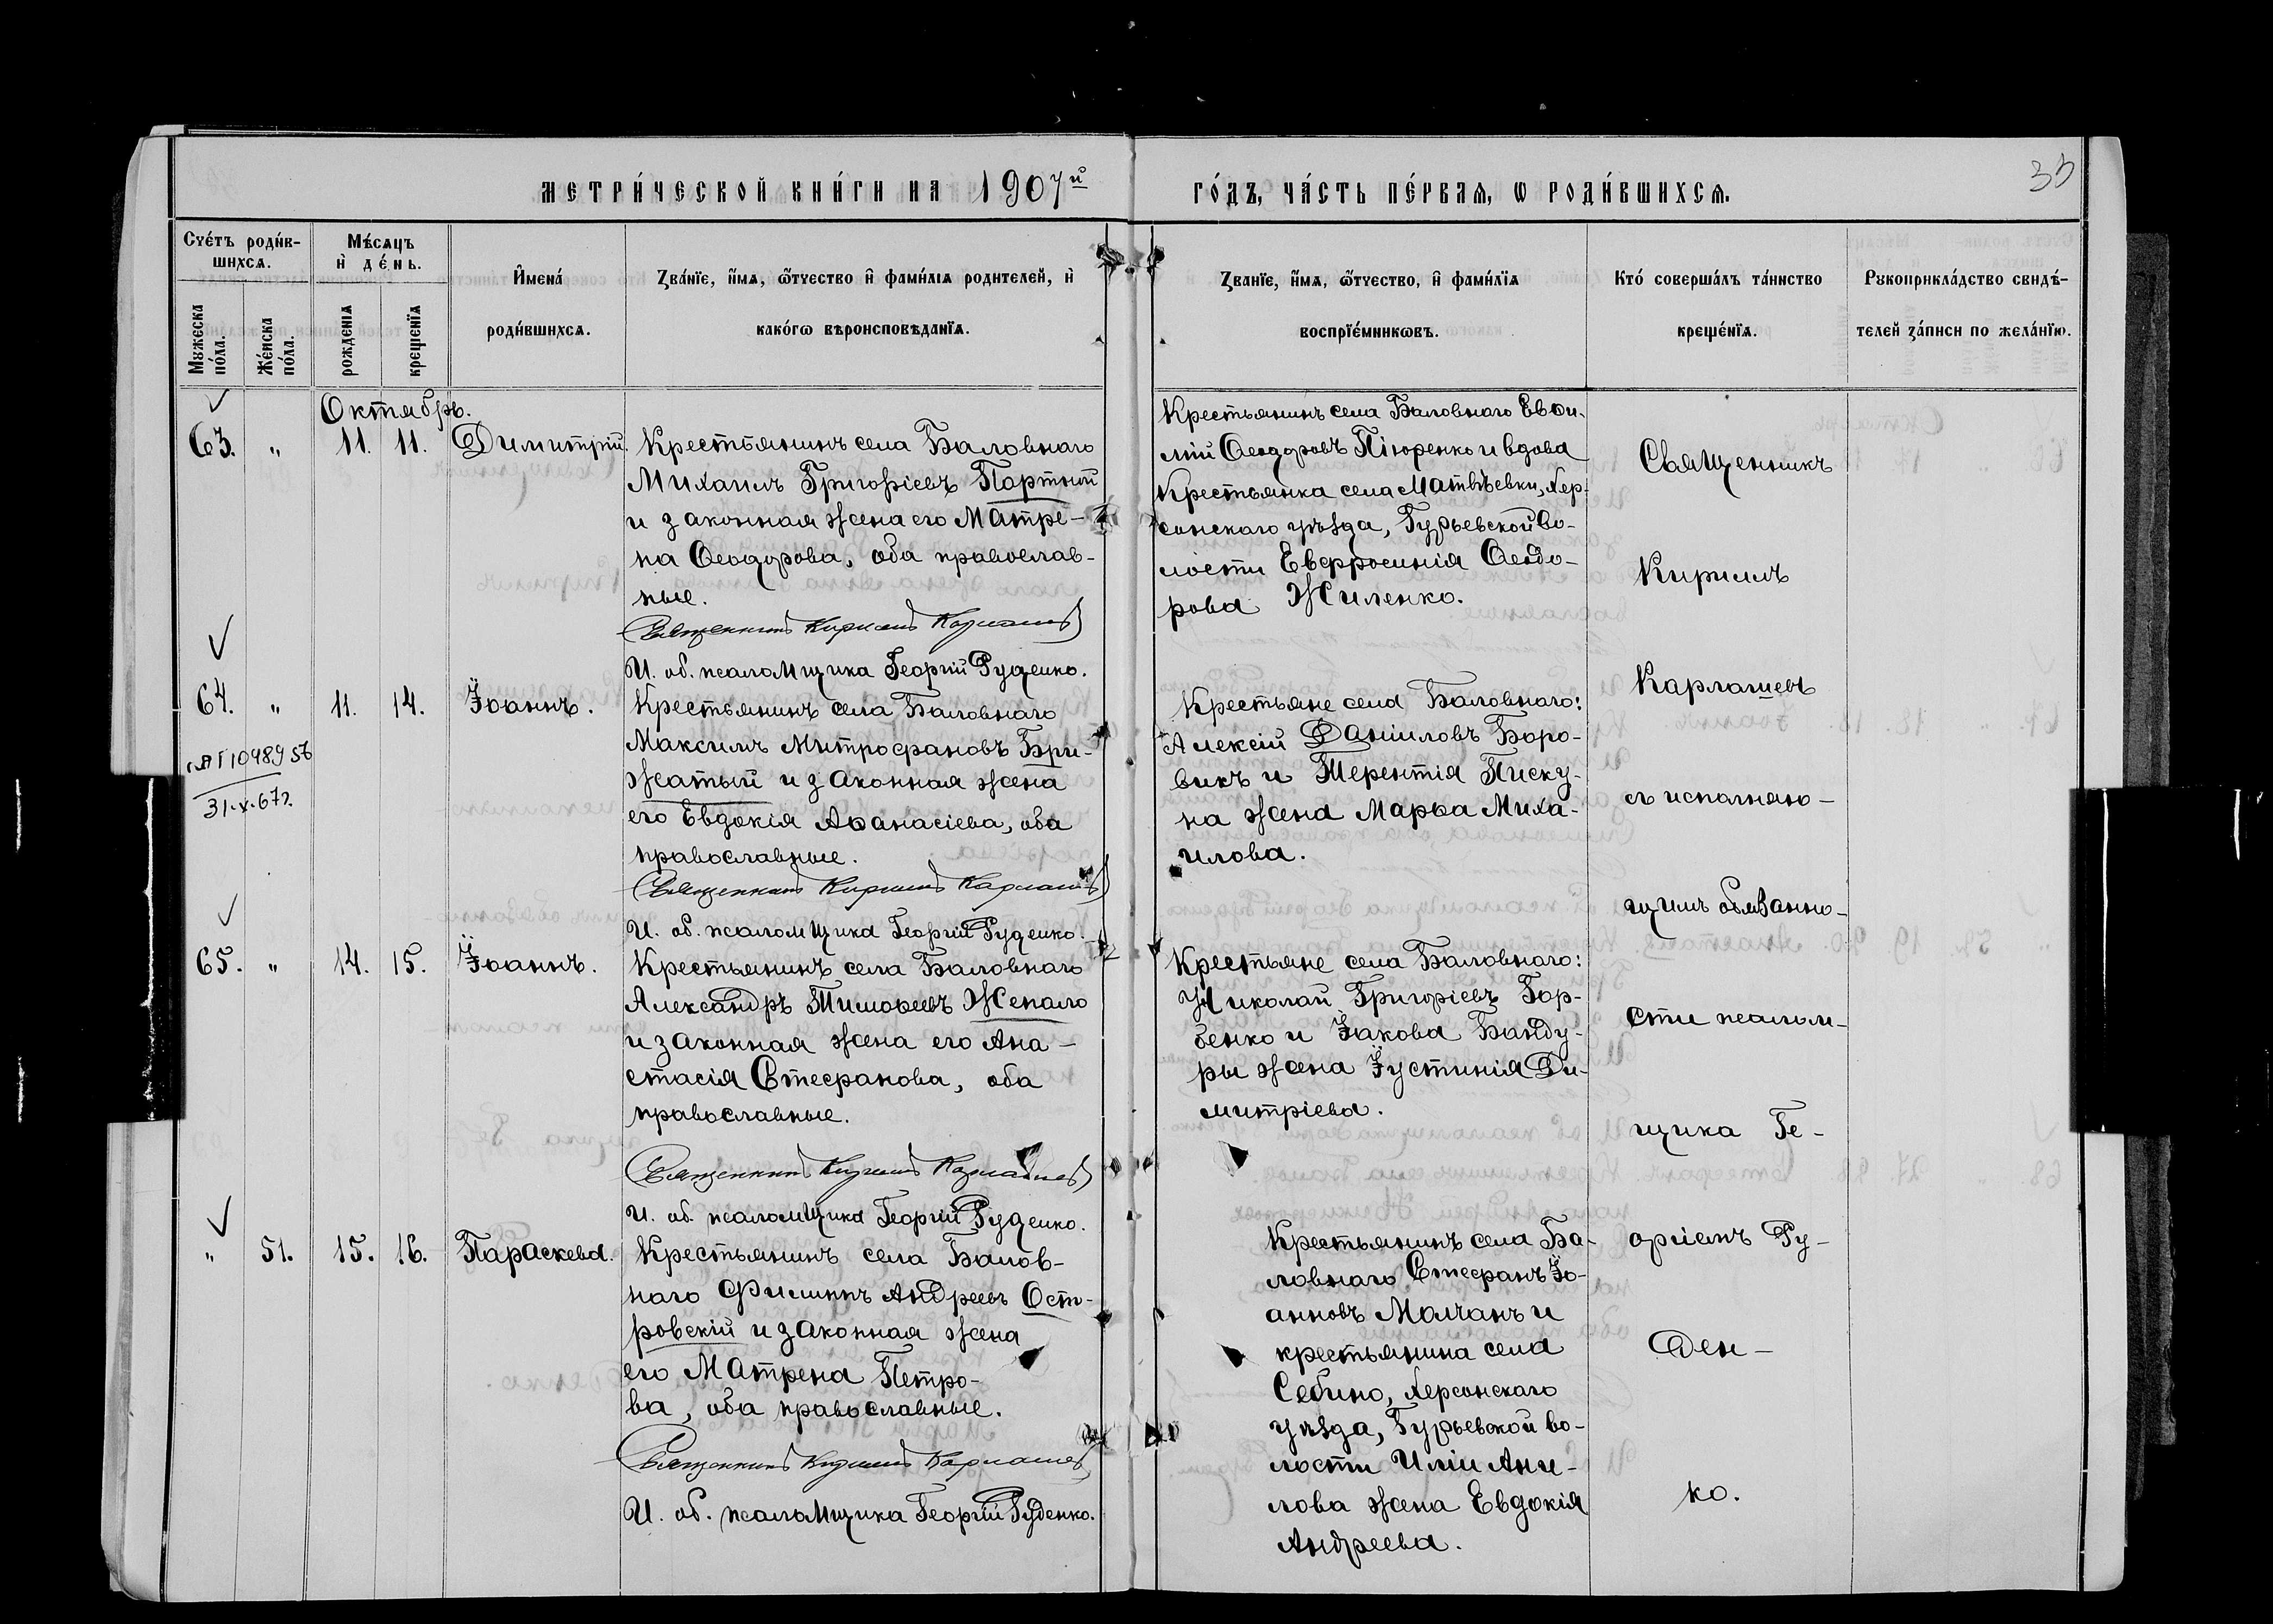 33
МЕТРИ́ЧЕСКОЙ КНИ́ГИ НА 1907й ГО́ДЪ, ЧА́СТЬ ПЕ́РВАЯ, Ѡ РОДИ́ВШИХСЯ.
Сче́тъ роди́в-
шихся.
Мужеска
по́ла.
Же́нска
по́ла.
Мѣ́сяцъ
и҆ де́нь.
рожденїя
крещенїя
И҆мена́
роди́вшихся.
Зва́нїе, и҆́мя, ѻ҆́тчество и҆ фами́лїя роди́телей, и҆
како́гѡ вѣроисповѣданїя.
Зва́нїе, и҆́мя, ѻ҆́тчество, и҆ фами́лїя
воспрїе́мникѡвъ.
Кто́ соверша́лъ та́инство
креще́нїя.
Рукоприкла́дство свидѣ́-
телей за́писи по жела́нїю.
Октябрь.
63. „ 11. 11. Димитрій.
Крестьянинъ села Баловнаго
Михаилъ Григоріевъ Портной
и законная жена его Матре-
на Ѳеодорова, оба православ-
ные.
Священникъ Кириллъ Карлашевъ
И. об. псаломщика Георгій Руденко.
Крестьянинъ села Баловнаго Евѳи-
мій Ѳеодоровъ Піюренко и вдова
Крестьянка села Матвѣевки, Хер-
сонскаго уѣзда, Гурьевской во-
лости Евфросинія Ѳеодо-
рова Жиленко.
64. „ 11. 14. Іоаннъ.
1048956
31.X.67г.
Крестьянинъ села Баловнаго
Максимъ Митрофановъ Бри-
жатый и законная жена
его Евдокія Аѳанасіева, оба
православные.
Священникъ Кириллъ Карлашевъ
И. об. псаломщика Георгій Руденко.
Крестьяне села Баловнаго:
Алексій Даніиловъ Боро-
викъ и Терентія Писку-
на жена Марѳа Миха-
илова.
65. „ 14. 15. Іоаннъ.
Крестьянинъ села Баловнаго
Александръ Тимоѳеевъ Жепало
и законная жена его Ана-
стасія Стефанова, оба
православные.
Священникъ Кириллъ Карлашевъ
И. об. псаломщика Георгій Руденко.
Крестьяне села Баловнаго:
Николай Григоріевъ Гор-
бенко и Іакова Банду-
ры жена Іустинія Ди-
митріева.
„ 51. 15. 16. Параскева.
Крестьянинъ села Балов-
наго Филиппъ Андреевъ Ост-
ровскій и законная жена
его Матрена Петро-
ва, оба православные.
Священникъ Кириллъ Карлашевъ
И. об. псаломщика Георгій Руденко.
Крестьянинъ села Ба-
ловнаго Стефанъ Іо-
анновъ Молчанъ и
крестьянина села
Себино, Херсонскаго
уѣзда, Гурьевской во-
лости Иліи Ани-
лова жена Евдокія
Андреева.
Священникъ
Кириллъ
Карлашевъ
съ исполняю-
щимъ обязанно-
сти псалом-
щика Ге-
оргіемъ Ру-
ден-
ко.